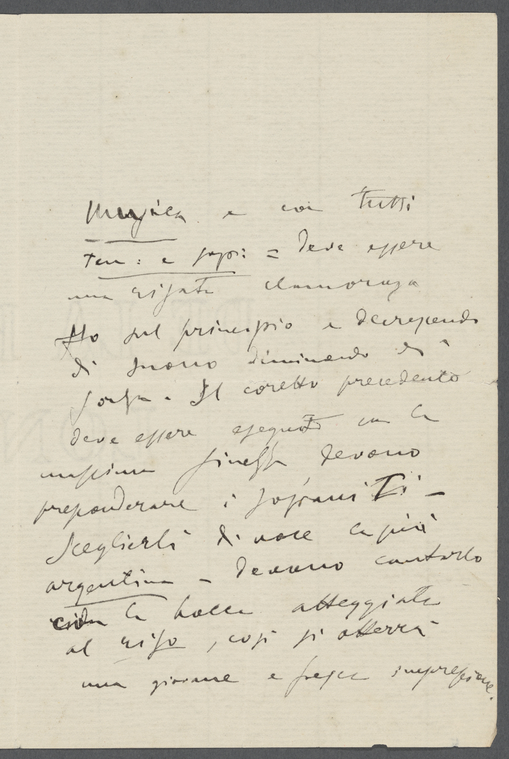 musica e con tutti
ten: e sop: = deve essere
una risata clamorosa
ffo sul principio e decrescendo
di suono diminuendo di
forza. Il coretto precedente
deve essere eseguito con la
massima finezza devono
preponderare i soprani Ti -
Sceglierli di voce la più
argentina - devono cantarlo
colla bocca atteggiata
al riso, così si otterrà
una giovane e fresca impressione.